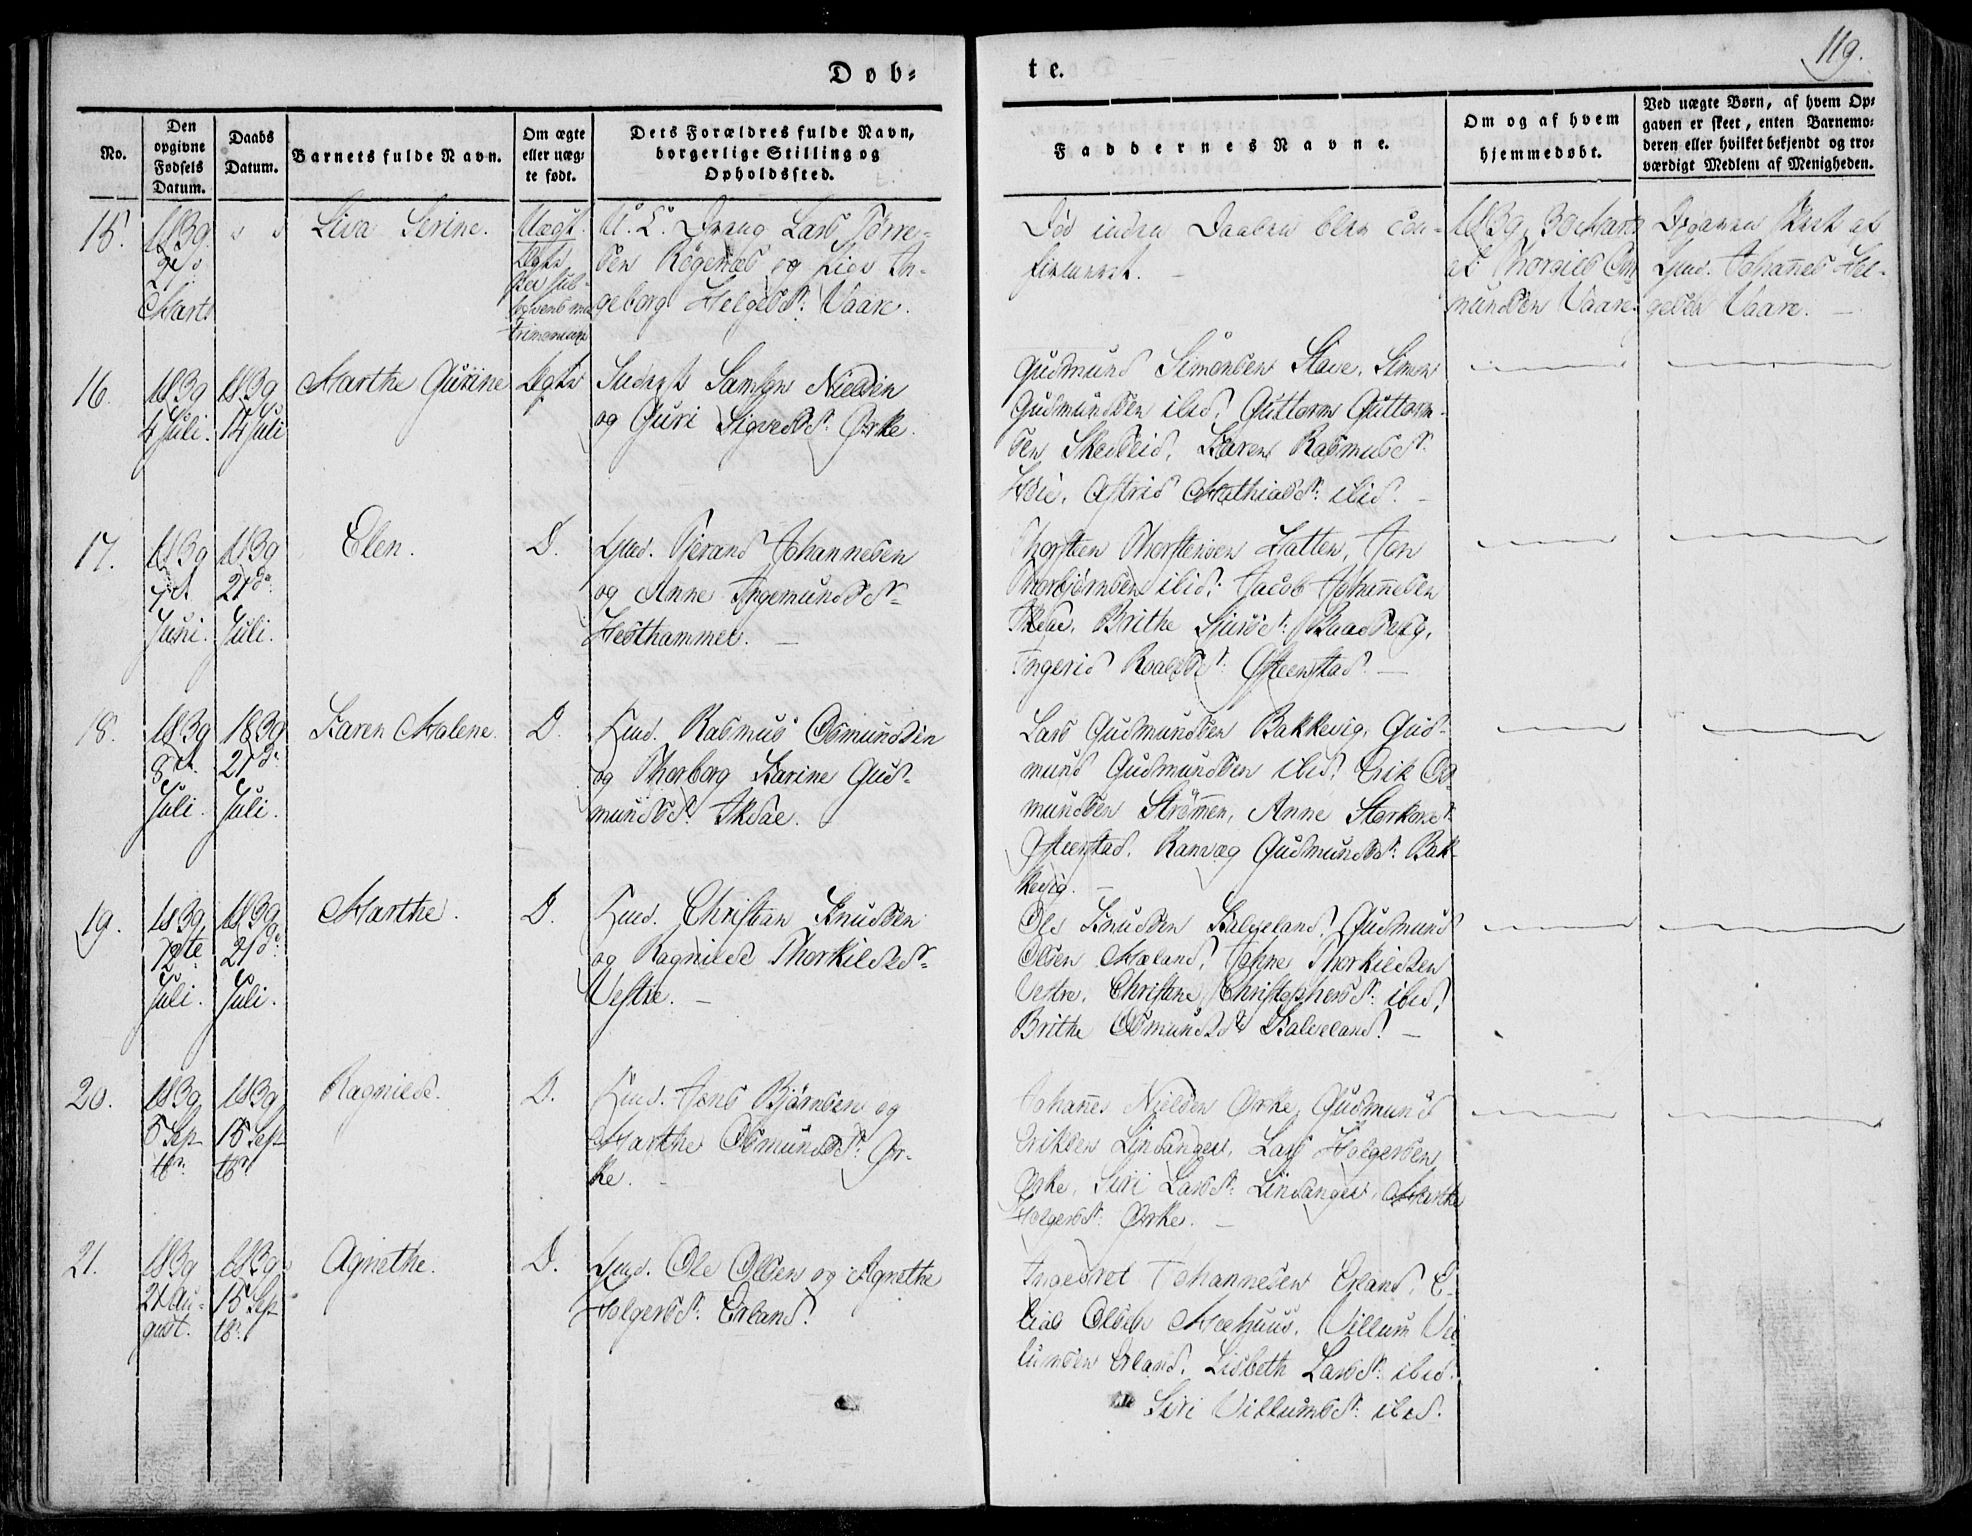 119.
Døb-
te.
No.
Den
opgivne
Fødsels
Datum.
Daabs
Datum.
Barnets fulde Navn.
Om ægte
eller uæg-
te født.
Dets Forældres fulde Navn,
borgerlige Stilling og
Opholdssted.
Faddernes Navne.
Om og af hvem
hjemmedøbt.
Ved uægte Børn, af hvem Op-
gaven er skeet, enten Barnemo-
deren eller hvilket bekjendt og tro-
værdigt Medlem af Menigheden.
15.
1839
Marts
Serine.
Uægt.
Lars Tørre-
sen og
geborg Helgesd: Vaare.
Død Daaben blev con-
1839, 30 Marts
af
mundsen Vaare.
Opgaven skeet af
Gmd. Johañes Hel-
gesen Vaare.
16.
1839
4 Juli.
1839
14 Juli
Marthe Gurine
Ægte
Samson Nielsen
og Guri Sigvedsd: Ørke.
Gudmund Simonsen Slave, Simon
Gudmundsen ibid, Guttorm Guttorm-
sen Skeiseid, Karen Rasmusd:
Høie, Astrid Mathiasd: ibid.
17.
1839
7d
Juni.
1839
21de
Juli.
Elen.
D.
Gmd. Tjerand Johannesen
og Anne Ingemundsd:
Hesthammer.
Thorsten Thorstensen Hatten, Jon
Thorbjørnsen ibid, Jacob Johañesen
Brithe Sjursd:
Ingerid Roaldsd: Østenstad.
18.
1839
8d
Juli.
1839
21de
Juli.
Karen Malene.
D.
Huusm. Rasmus Osmundsen
og Thorborg Karine Gud-
mundsd: Iksae.
Lars Gudmundsen Bakkevig, Gud-
mund Gudmundsen ibid, Erik Os-
mundsen Strømen, Anne Storkorsd:
Østenstad, Ranvæg Gudmundsd: Bak-
kevig.
19.
1839
12te
Juli.
1839
21de
Juli.
Marthe.
D.
Christian Knudsen
og Ragnilde Thorkildsd:
Vestre.
Ole Knudsen Kalveland, Gudmund
Olsen Mæland, Johñes Thorkildsen
Vestre, Christene Christophersd: ibid,
Brithe Osmundsd Kalveland.
20.
1839
5 Sep
tbr.
1839
15 Sep
tbr.
Ragnilde.
D.
Jens Bjørnsen og
Marthe Osmundsd: Ør-
ke.
Johañes Nielsen Ørke, Gudmund
Eriksen Lindanger, Lars Holgersen
Ørke, Siri Larsd: Lindanger, Marthe
Holgersd: Ørke.
21.
1839
21 Au-
gust.
1839
15 Sep
tbr.
Agnethe.
D.
Gmd. Ole Olsen og Agnethe
Holgersd: Erland.
Ingebret Johannesen Erland, E-
lias Olsen Meehuus, Villum Vil-
lumsen Erland, Lisbeth Larsd: ibid.
Siri Villumsd: ibid.